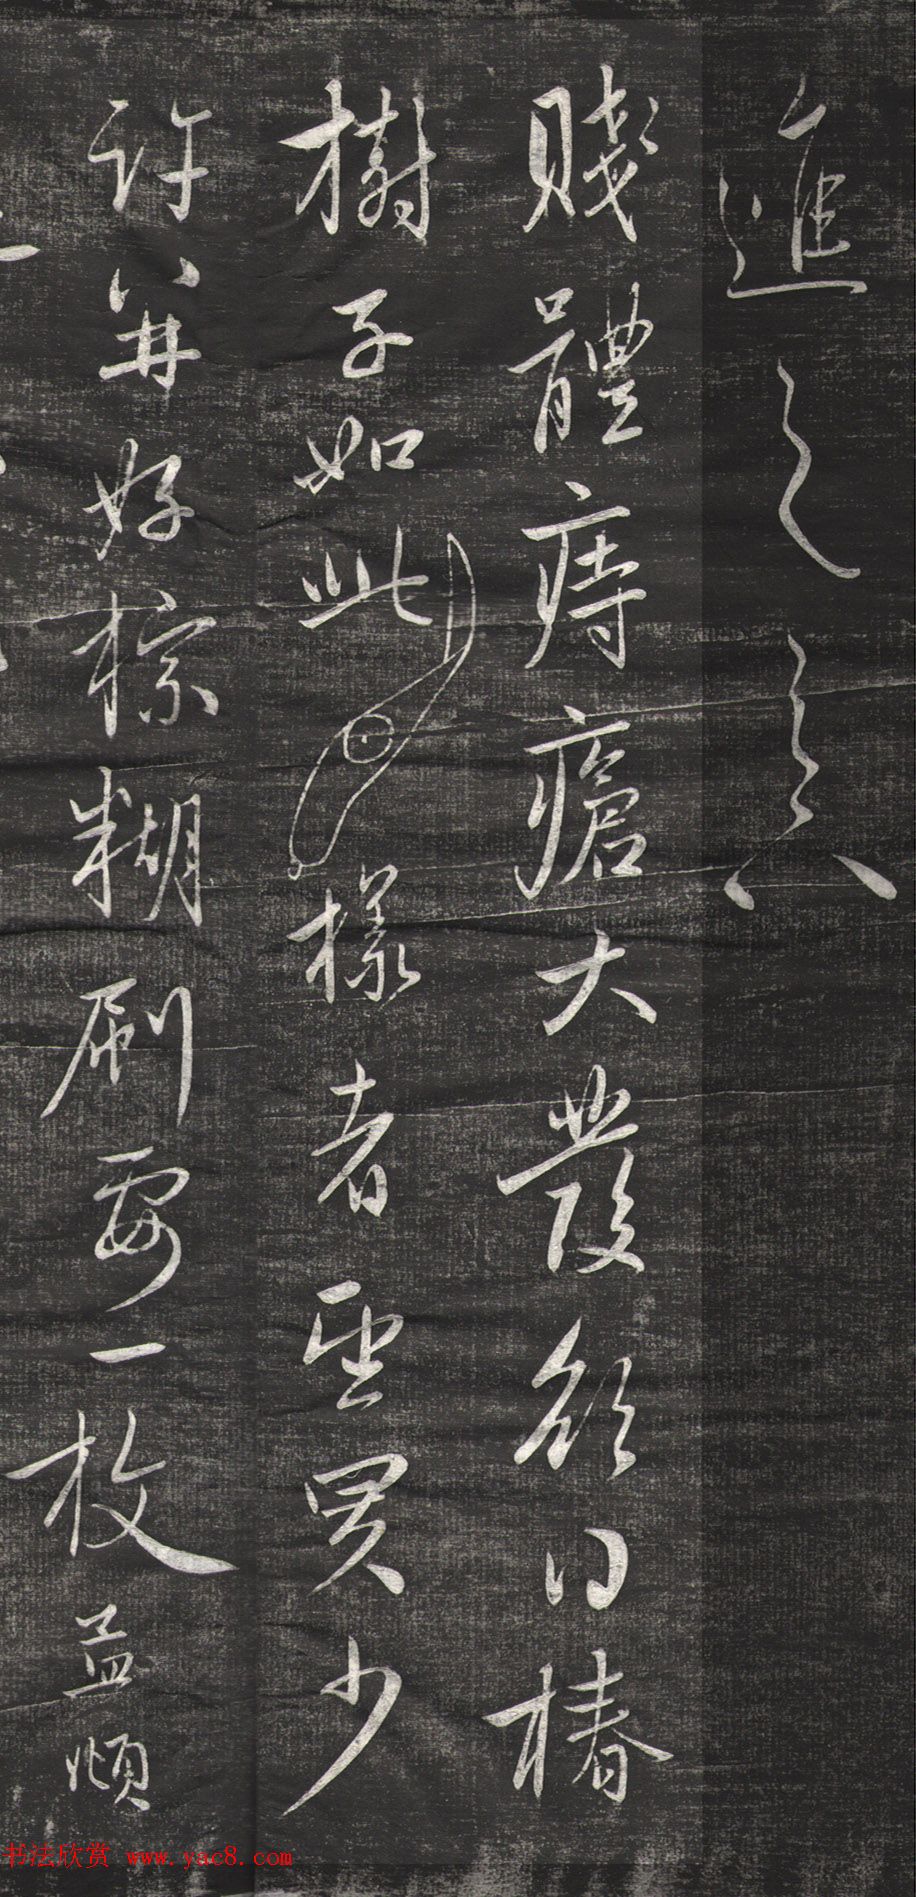 進之之六
賤體痔瘡大發欲得椿
樹子如此樣者望買少
許並好棕糊刷要一枚孟頫
书法欣赏 www.yac8.com